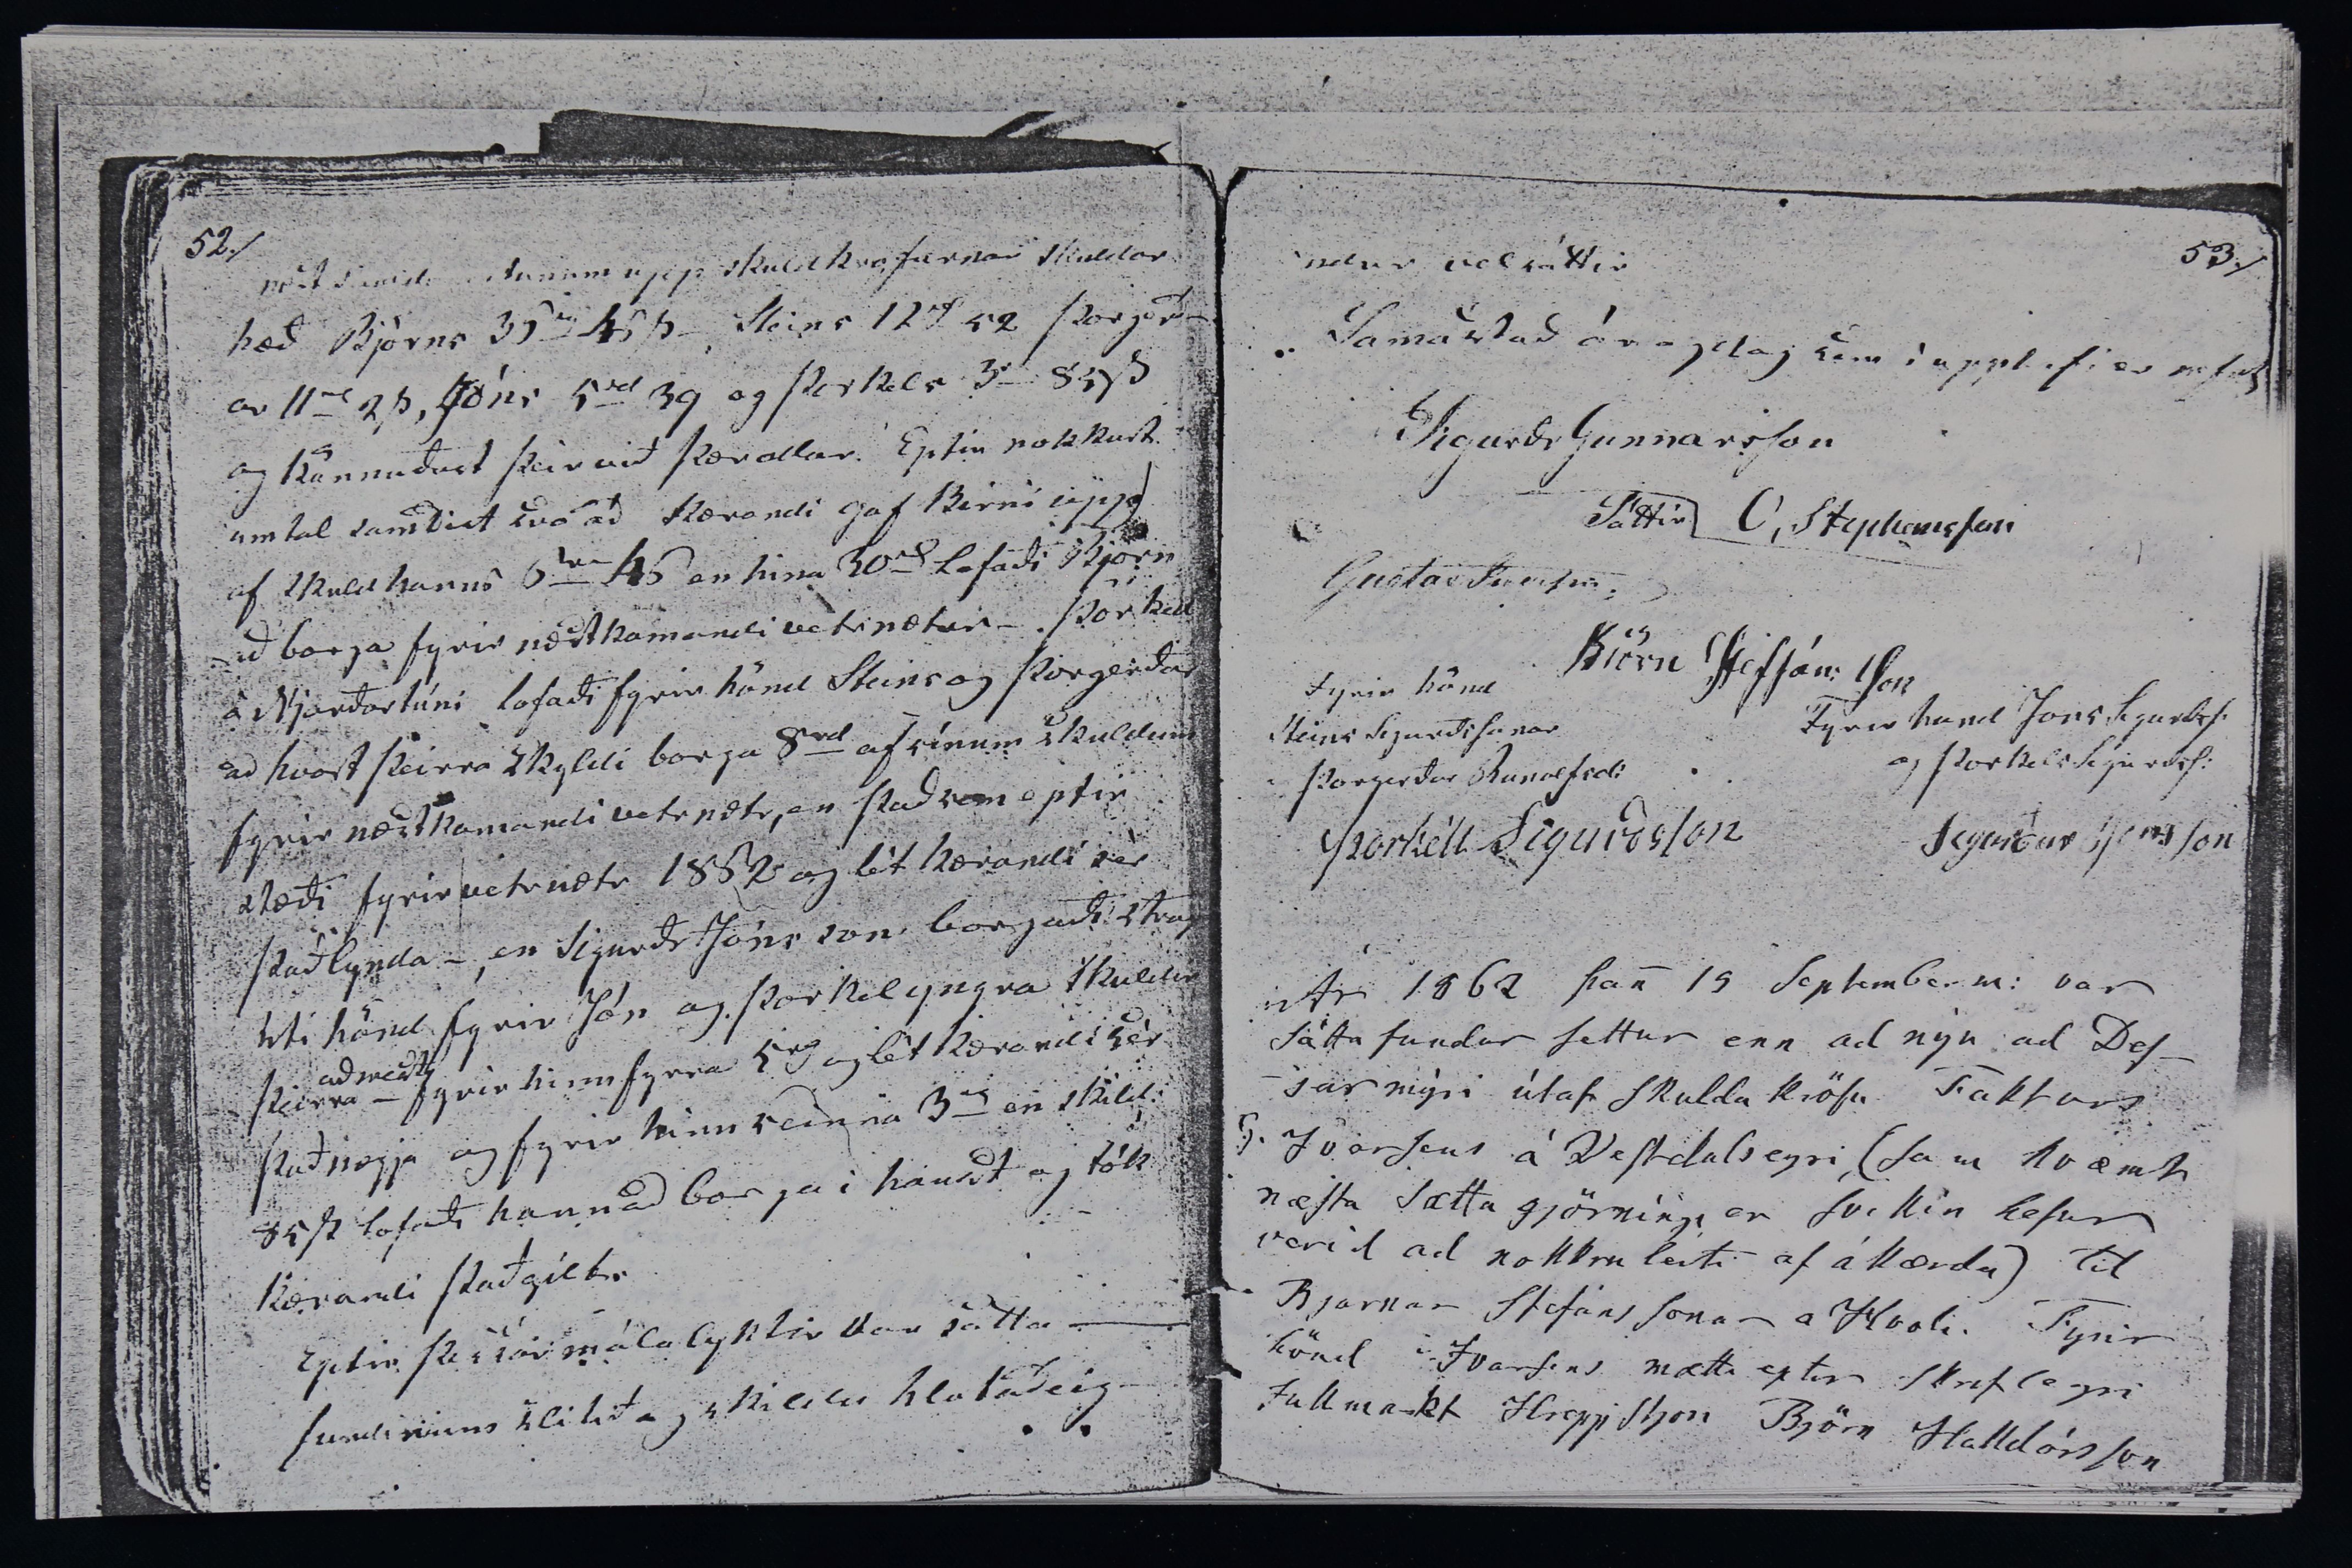 52./
upp skuldkröfurnar skuldar
hæð Björns 35rd 45ß, Steins 12rd 52 Þorgerð-
ar 11rd 2ß, Jóns 5rd 39 og Þorkels 3rd 85ß
og könnuðust þeir við þær allar. Eptir nokkurt
umtal samdist svo að kærandi gaf Birni upp
af skuld hanns 5rd 45 en hina 30rd lofaði Björn
að borga fyrir næstkomandi vetrnætur -. Þorkell
á Njarðartúni lofaði fyrir hönd Steins og Þorgerðar
að hvort þeirra skyldi borga 8rd af sínum skuldum
fyrir næstkomandi vetrnætr, en það sem eptir
stæði fyrir vetrnætr 1862 og lét kærandi sér
það lynda -, en Sigurðr Jónsson borgaði strax
úti hönd fyrir Jón og Þorkel yngra skuldir
þeirra - að mestu fyrir hinn fyrra 5rd og lét kærandi sér
það nægja og fyrir hinn seinna 3rd en skild.
85ß lofaði hann að borga í haust og tók
kærandi það gilt.
Eptir þessar málalyktir var sátta
fundi slitið og skildu hlutaðeig-
53./
endur vel sáttir
Samastað ár og dag sem í upphafi er
Sigurðr Gunnarsson
Sáttir O. Stephensson
Gustav Iversen
Björn Steffáns son
Fyrir hönd
Steins Sigurðssonar
Þorgerðar Runólfsd:
Fyrir hönd Jóns Sigurðss.
og Þorkels Sigurðss:
Þorkell Sigurðsson
Sigurður Jónsson
Ár 1862 þañ 15 September m: var
sátta fundur settur enn ad nýu ad Des-
jarmýri útaf skulda kröfu Faktors
G. Iversens á Vestdalseyri, (sam kvæmt
næsta sætta gjörníngi er svikin hefur
verid ad nokkru leiti af ákærda) til
Bjarnar Stefánssonar a Hvoli. Fyrir
hönd Iversens mætti eptir skriflegri
fullmakt Hreppstjóri Björn Halldórsson